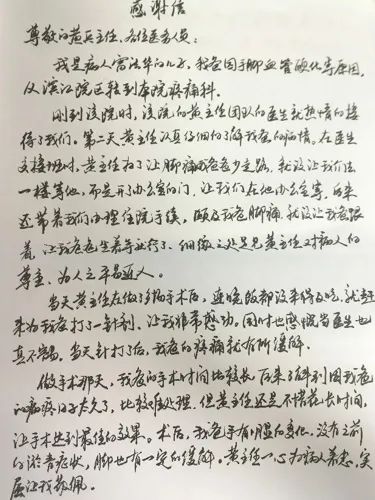 感谢信
尊敬的黄兵主任、各位医务人员:
我是病人雷法华的儿子,我爸因手脚血管硬化等原因,
从滨江院区转到本院疼痛科。
刚到该院时,该院的黄主任团队的医生就热情的接
待了我们。第二天黄主任认真仔细的了解我爸的病情。在医生
交接班时,黄主任为了让脚痛我爸爸少走路,就没让我们去
一楼等他,而是开了办公室的门,让我们在他办公室等,后来
还带着我们办理住院手续,顾及我爸脚痛,就没让我爸跟
着,让我爸爸坐着等就行了,细微之处足见黄主任对病人的
尊重、为人之平易近人。
当天黄主任在做了多场手术后,连晚饭都没来得及吃,就赶
来为我爸打了一针剂,让我非常感动。同时也感慨当医生也
真不容易。当天针打了后,我爸的疼痛就有所缓解。
做手术那天,我爸的手术时间比较长,后来了解到因我爸
的病疼的日子太久了,比较难处理,但黄主任还是不惜花长时间,
让手术达到最佳的效果。术后,我爸手有明显的变化,没有之前
的淤青症状,脚也有一定的缓解。黄主任一心为病人着想,实
属让我敬佩。